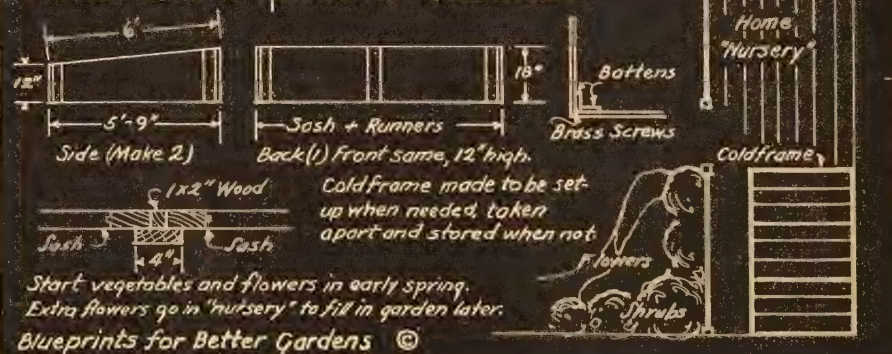 6'
12"
5'-9"
Side (Make 2)
Sash + Runners
18"
Back (1) Front same, 12" high.
Battens
Brass Screws
Home
"Nursery"
Coldframe
1x2" Wood
Sash
Sash
4"
Coldframe made to be set-
up when needed, taken
apart and stored when not.
Flowers
Shrubs
Start vegetables and flowers in early spring.
Extra flowers go in "nursery" to fill in garden later.
Blueprints for Better Gardens ©